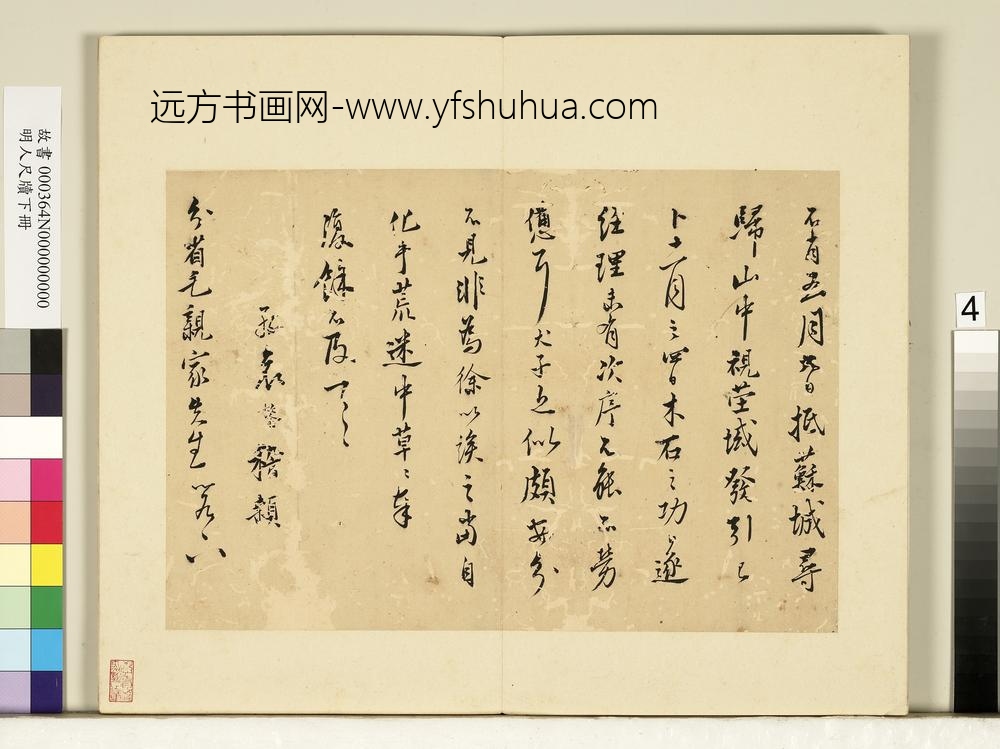 远方书画网-www.yfshuhua.com
故書 000364N000000000
明人尺牘下冊
4
不肖五月 抵蘇城尋
歸山中視塋域發引已
卜十一月之 木石之功 遂
經理未有次序不能不勞
憊耳犬子 似頗安分
不見非為徐以誘之當自
化耳荒迷中草草奉
復餘不及
袁 稽顙
省元親家先生